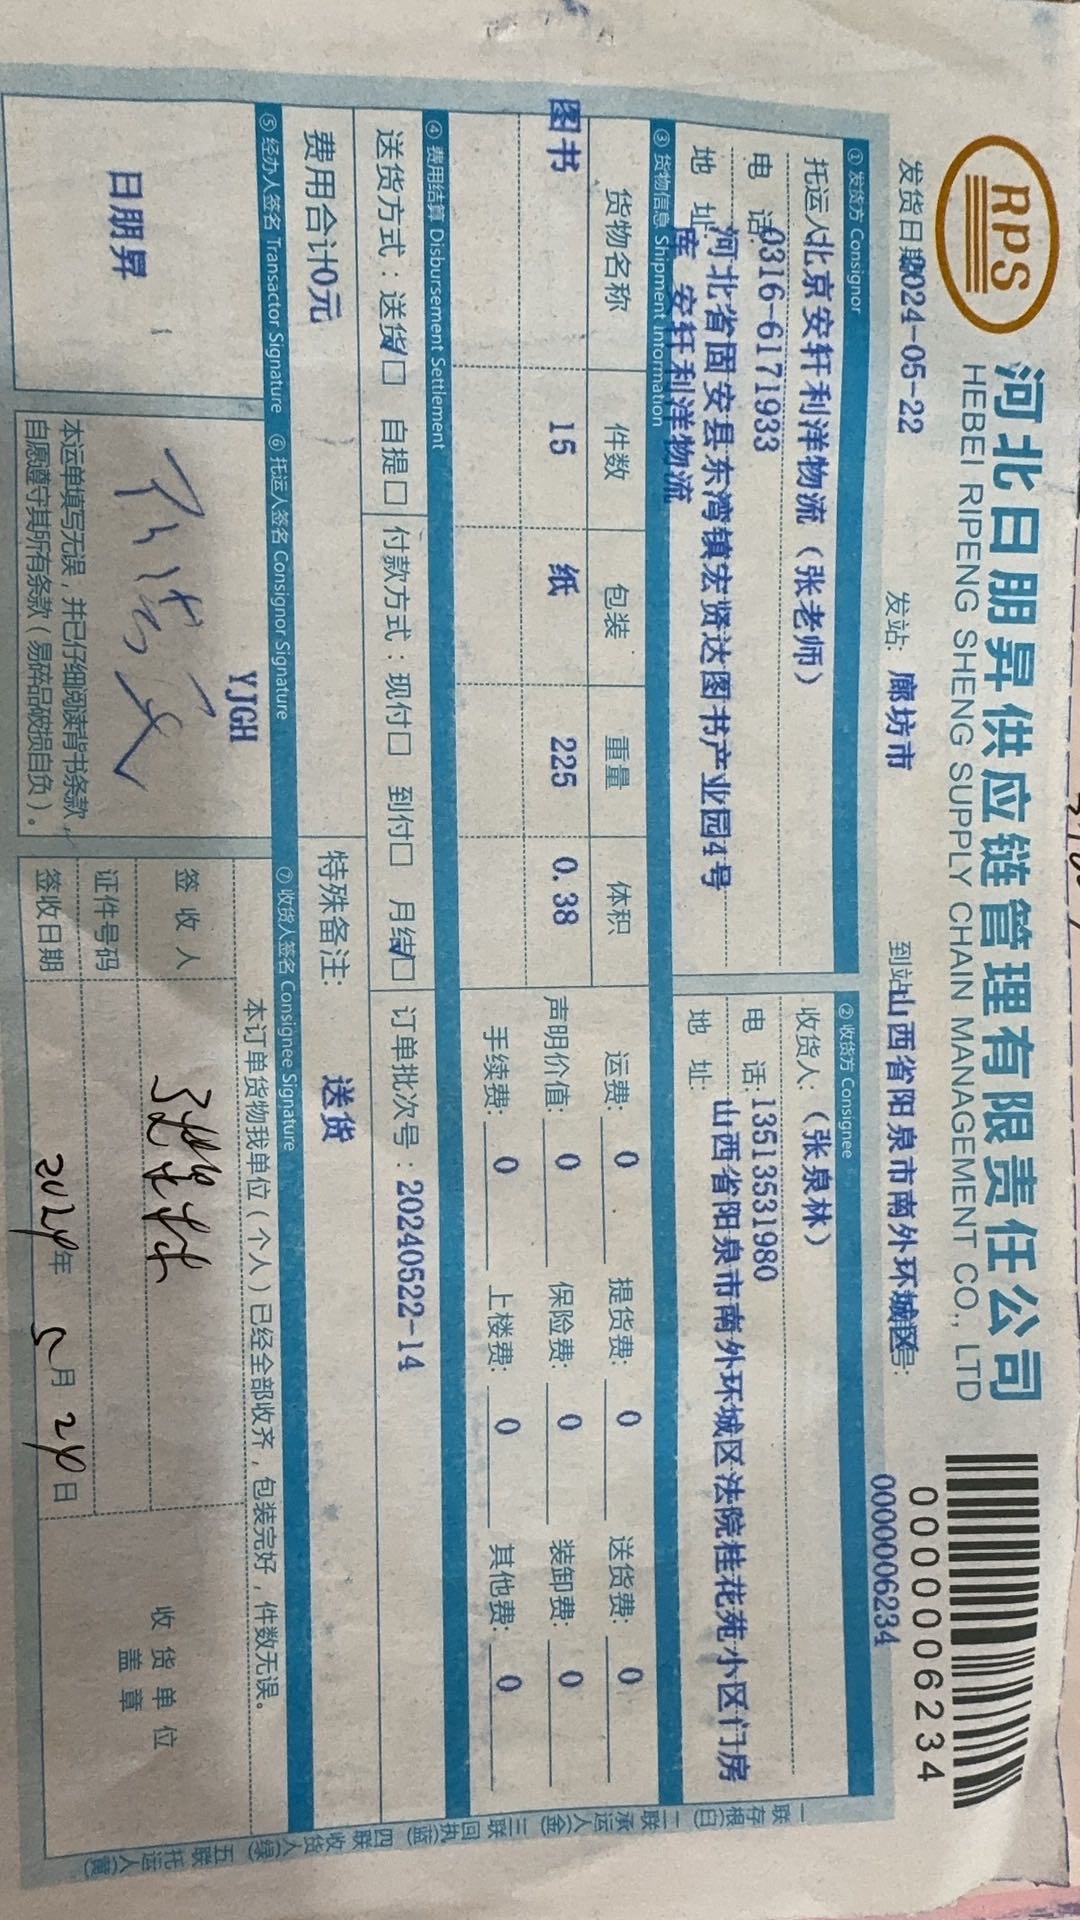 RPS
河北日朋昇供应链管理有限责任公司
HEBEI RIPENG SHENG SUPPLY CHAIN MANAGEMENT CO., LTD
0000006234
发货日期2024-05-22
发站: 廊坊市
到站山西省阳泉市南外环城区号:
0000006234
① 发货方 Consignor
托运人北京安轩利洋物流（张老师）
电 话:0316-6171933
地 址 河北省固安县东湾镇宏贤达图书产业园4号
库 安轩利洋物流
② 收货方 Consignee
收货人:（张泉林）
电 话:13513531980
地 址: 山西省阳泉市南外环城区法院桂花苑小区门房
③ 货物信息 Shipment Information
货物名称 件数 包装 重量 体积
图书 15 纸 225 0.38
运费: 0 提货费: 0 送货费: 0
声明价值: 0 保险费: 0 装卸费: 0
手续费: 0 上楼费: 0 其他费: 0
④ 费用结算 Disbursement Settlement
送货方式：送货☑ 自提□ 付款方式：现付□ 到付□ 月结☑ 订单批次号：20240522-14
费用合计0元
特殊备注: 送货
⑤ 经办人签名 Transactor Signature
日朋昇
⑥ 托运人签名 Consignor Signature
YJGH
本运单填写无误，并已仔细阅读背书条款，
自愿遵守其所有条款（易碎品破损自负）。
⑦ 收货人签名 Consignee Signature
本订单货物我单位（个人）已经全部收齐，包装完好，件数无误。
签收人 张泉林
证件号码
签收日期 2024年 5月 24日
收货单位
盖章
一联存根(白) 二联承运人(金) 三联回执(蓝) 四联收货人(绿) 五联托运人(黄)